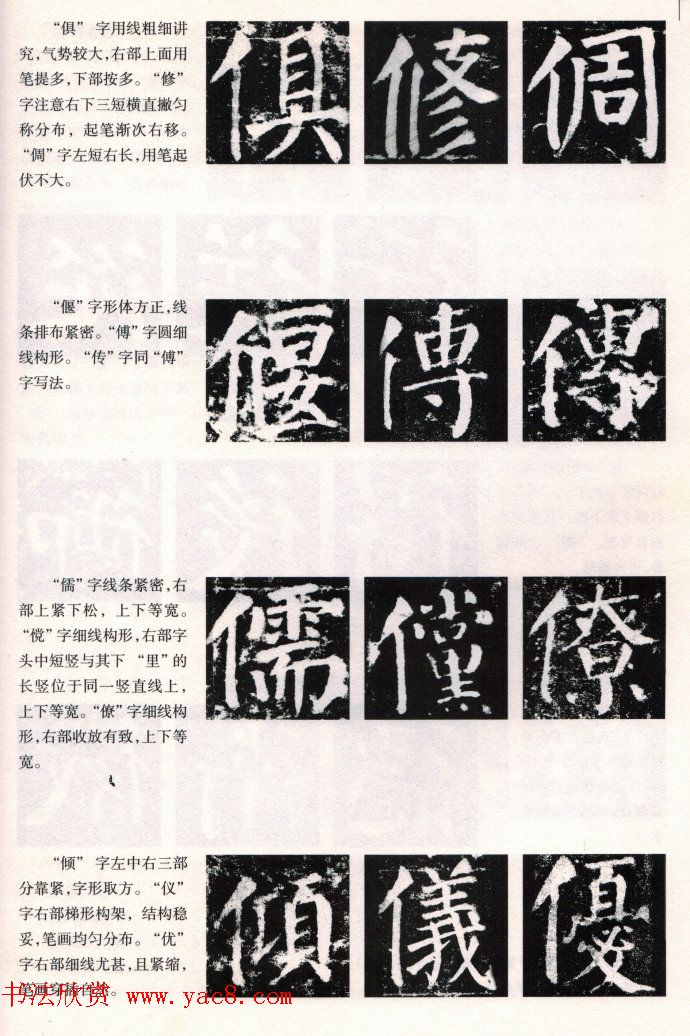 “俱” 字用线粗细讲
究,气势较大,右部上面用
笔提多,下部按多。“修”
字注意右下三短横直撇匀
称分布, 起笔渐次右移。
“倜”字左短右长,用笔起
伏不大。
俱 修 倜
“偃”字形体方正,线
条排布紧密。“傅”字圆细
线构形。“传”字同“傅”
字写法。
偃 傳 傳
“儒”字线条紧密,右
部上紧下松, 上下等宽。
“傥”字细线构形,右部字
头中短竖与其下 “里”的
长竖位于同一竖直线上,
上下等宽。“僚”字细线构
形,右部收放有致,上下等
宽。
儒 儻 僚
“倾” 字左中右三部
分靠紧,字形取方。“仪”
字右部梯形构架, 结构稳
妥,笔画均匀分布。“优”
字右部细线尤甚,且紧缩,
笔画穿插自然。
傾 儀 優
书法欣赏 www.yac8.com